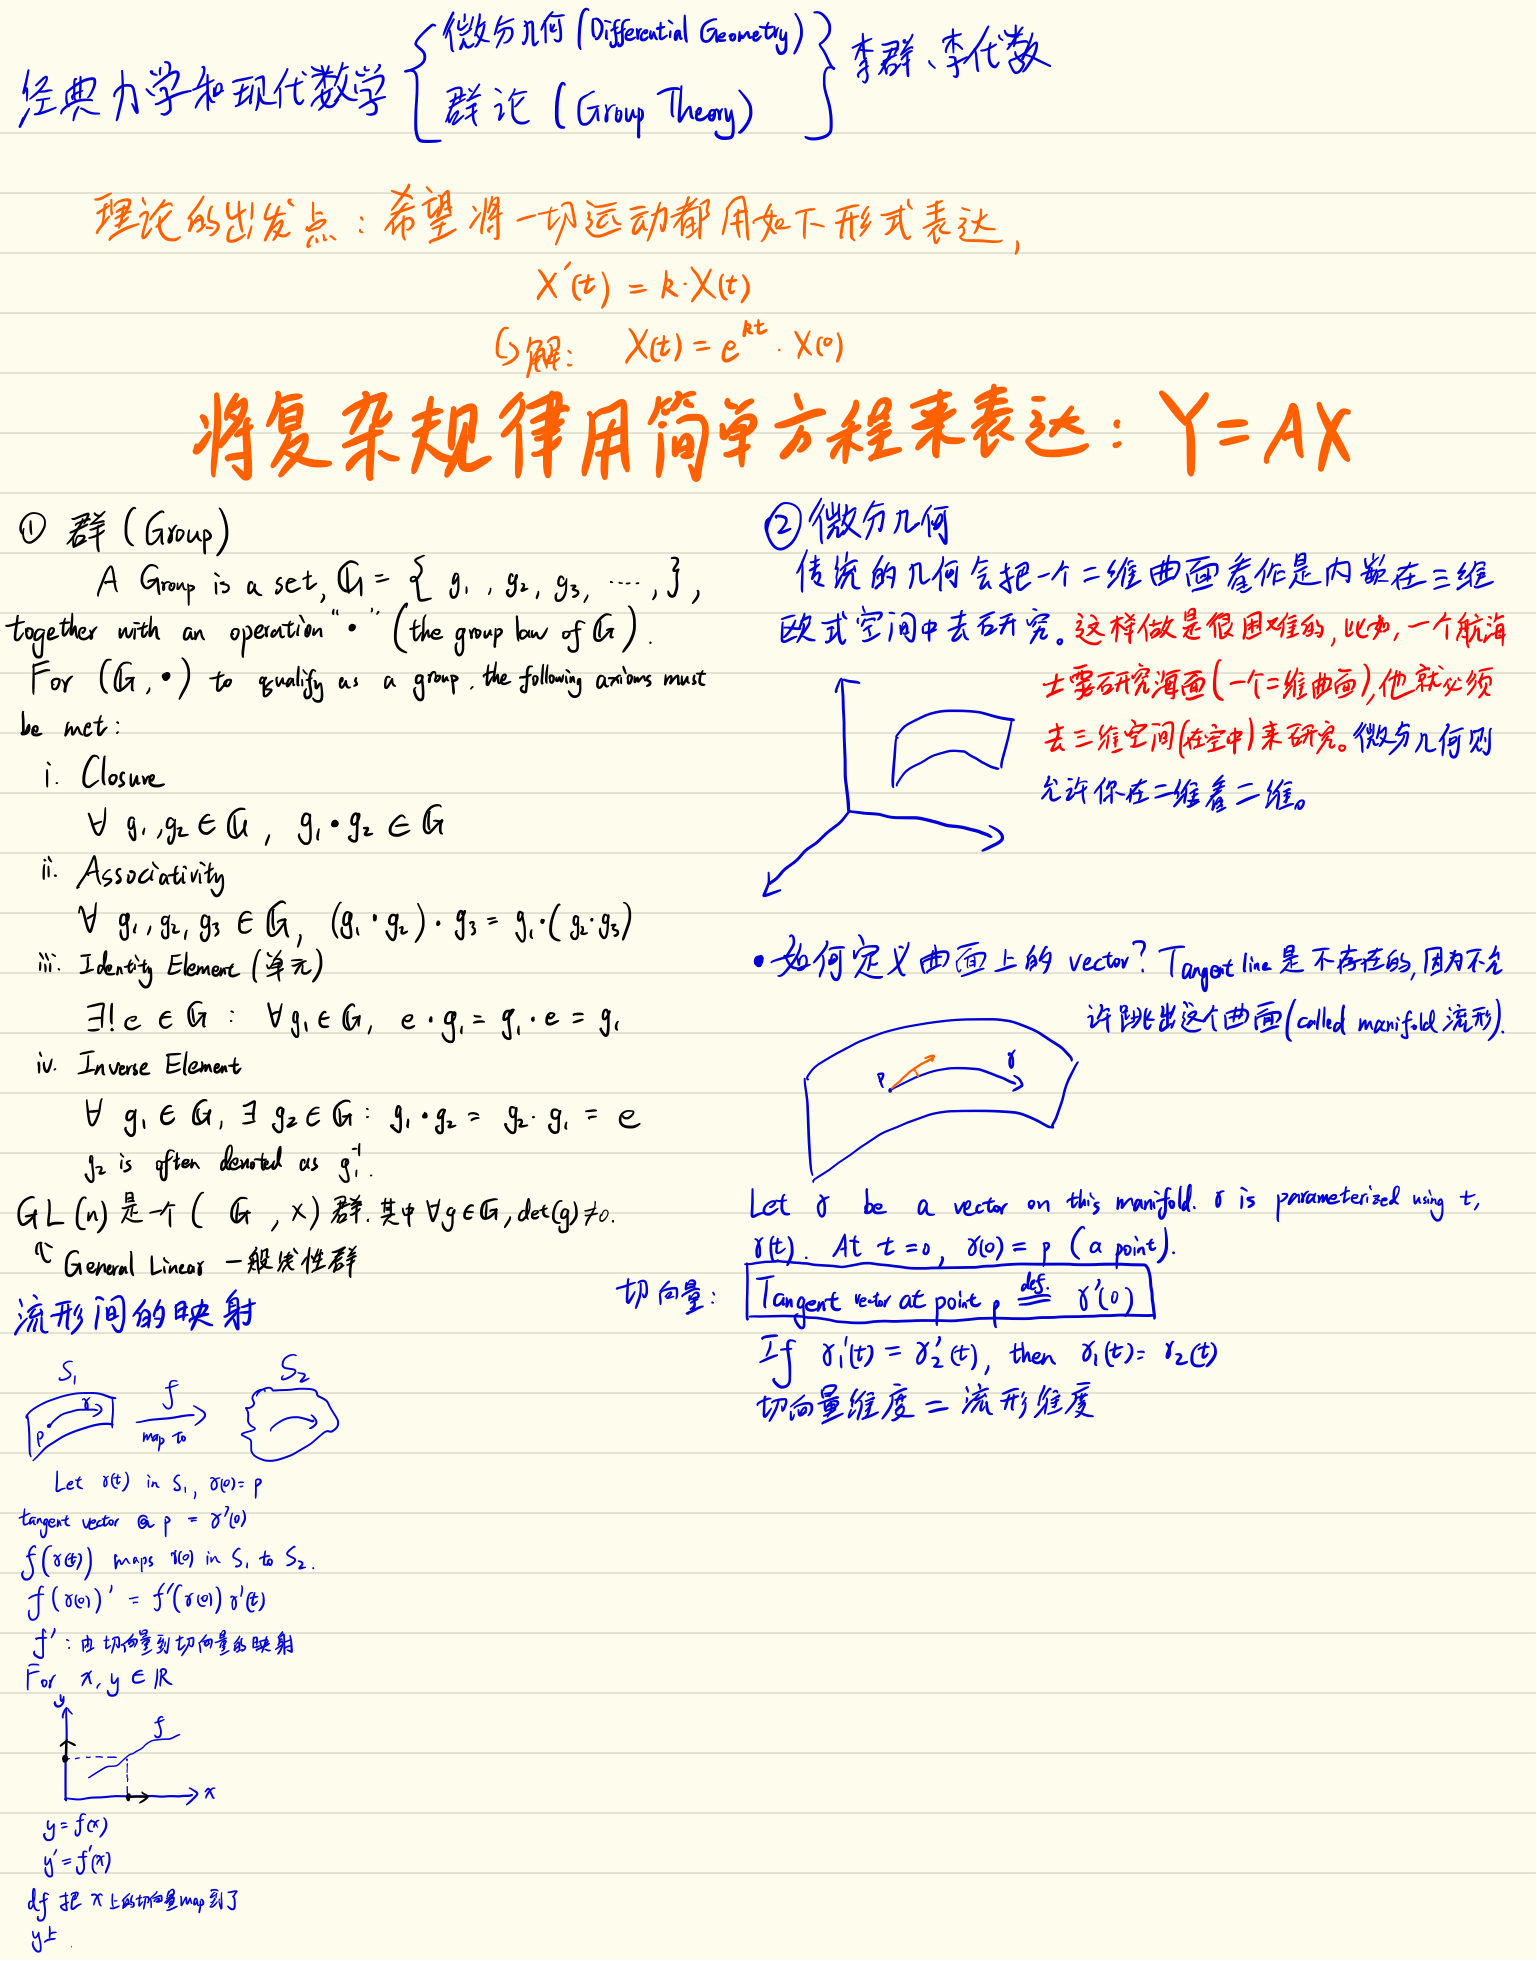 经典力学和现代数学 { 微分几何 (Differential Geometry)
群论 (Group Theory) } 李群、李代数
理论的出发点：希望将一切运动都用如下形式表达,
X'(t) = k·X(t)
解: X(t) = e^{kt} · X(0)
将复杂规律用简单方程来表达: Y=AX
① 群 (Group)
A Group is a set, 𝔾 = { g₁, g₂, g₃, ...., },
together with an operation "•" (the group law of 𝔾).
For (𝔾, •) to qualify as a group, the following axioms must
be met:
i. Closure
∀ g₁, g₂ ∈ 𝔾, g₁•g₂ ∈ 𝔾
ii. Associativity
∀ g₁, g₂, g₃ ∈ 𝔾, (g₁·g₂)·g₃ = g₁·(g₂·g₃)
iii. Identity Element (单元)
∃! e ∈ 𝔾 : ∀ g₁ ∈ 𝔾, e·g₁ = g₁·e = g₁
iv. Inverse Element
∀ g₁ ∈ 𝔾, ∃ g₂ ∈ 𝔾 : g₁•g₂ = g₂·g₁ = e
g₂ is often denoted as g₁⁻¹.
GL(n) 是一个 (𝔾, ×) 群. 其中 ∀g∈𝔾, det(g)≠0.
General Linear 一般线性群
流形间的映射
S₁ f S₂
γ
p map to
Let γ(t) in S₁, γ(0)=p
tangent vector @ p = γ'(0)
f(γ(t)) maps γ(0) in S₁ to S₂.
f(γ(0))' = f'(γ(0)) γ'(t)
f' : 由切向量到切向量的映射
For x, y ∈ ℝ
y
f
x
y = f(x)
y' = f'(x)
df 把 x 上的切向量map到了
y上.
② 微分几何
传统的几何会把一个二维曲面看作是内嵌在三维
欧式空间中去研究。这样做是很困难的, 比如, 一个航海
士要研究海面(一个二维曲面), 他就必须
去三维空间(在空中)来研究。微分几何则
允许你在二维看二维。
• 如何定义曲面上的 vector? Tangent line 是不存在的, 因为不允
许跳出这个曲面(called manifold 流形).
p γ
Let γ be a vector on this manifold. γ is parameterized using t,
γ(t). At t=0, γ(0)=p (a point).
切向量: Tangent vector at point p ≝ γ'(0)
If γ₁'(t) = γ₂'(t), then γ₁(t) = γ₂(t)
切向量维度 = 流形维度